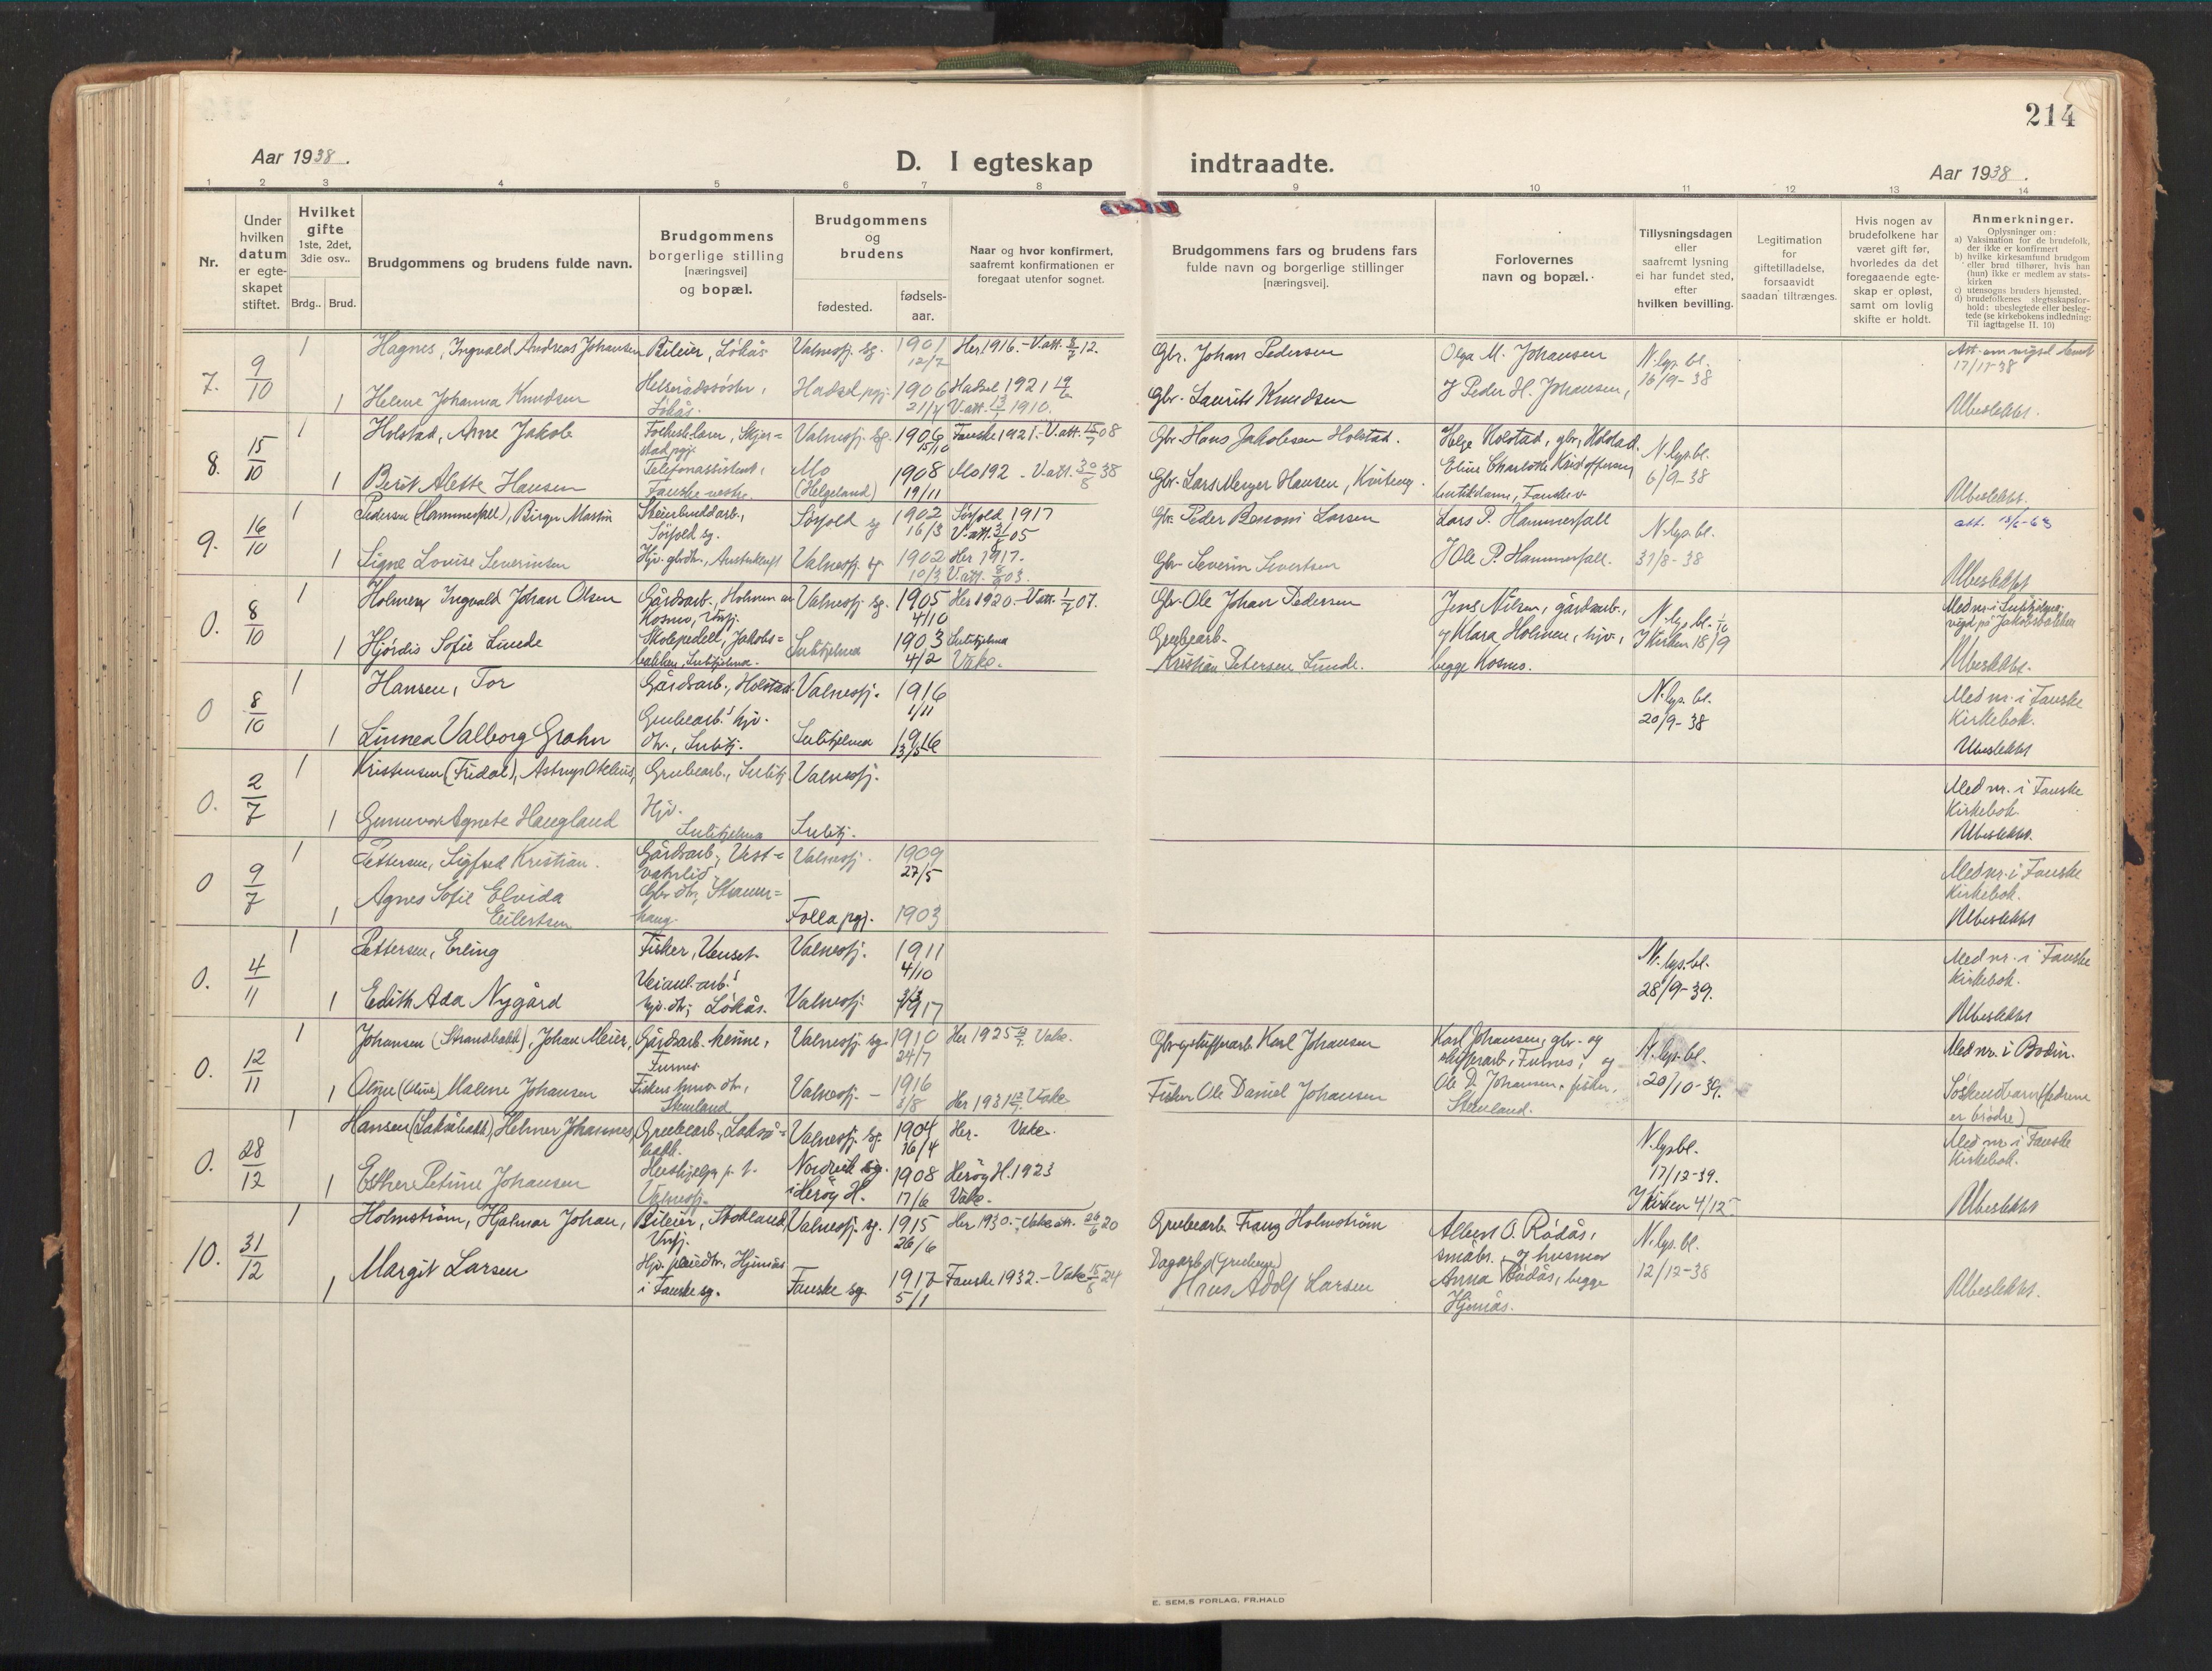 214
Aar 1938.
D. I egteskap indtraadte.
Aar 1938.
1 2 3 4 5 6 7 8 9 10 11 12 13 14
Nr.
Under hvilken datum er egte-skapet stiftet.
Hvilket gifte 1ste, 2det, 3die osv..
Brdg.. Brud.
Brudgommens og brudens fulde navn.
Brudgommens borgerlige stilling [næringsvei] og bopæl.
Brudgommens og brudens
fødested.
fødsels-aar.
Naar og hvor konfirmert, saafremt konfirmationen er foregaat utenfor sognet.
Brudgommens fars og brudens fars fulde navn og borgerlige stillinger [næringsvei].
Forlovernes navn og bopæl.
Tillysningsdagen eller saafremt lysning ei har fundet sted, efter hvilken bevilling.
Legitimation for giftetilladelse, forsaavidt saadan tiltrænges.
Hvis nogen av brudefolkene har været gift før, hvorledes da det foregaaende egte-skap er opløst, samt om lovlig skifte er holdt.
Anmerkninger.
Oplysninger om:
a) Vaksination for de brudefolk, der ikke er konfirmert
b) hvilke kirkesamfund brudgom eller brud tilhører, hvis han (hun) ikke er medlem av stats-kirken
c) utensogns bruders hjemsted.
d) brudefolkenes slegtsskapsfor-hold: ubeslegtede eller besleg-tede (se kirkebokens indledning: Til iagttagelse II. 10)
7. 9/10 1 Hagnes, Ingvald Andreas Johansen Bileier, Løkås Valnesfj. sg. 1901 12/7 Her 1916. - V.att. 12. Gbr. Johan Pedersen Olga M. Johansen N. lys. bl. 16/9-38 Att. om vigsel sendt 17/11-38
1 Helene Johanna Knudsen Helserådssøster, Løkås. Hadsel pgj. 1906 21/4 Hadsel 1921 V.att. 1910. Gbr. Laurits Knudsen Peder H. Johansen, Ubeslektet.
8. 15/10 1 Holstad, Arne Jakob Folkesk.lærer, Skjer=stad pgj. Valnesfj. sg. 1906 15/10 Fauske 1921. - V.att. 08 Gbr. Hans Jakobsen Holstad. Helge Holstad, gbr, Holstad. N. lys. bl. 6/9-38
1 Berit Alette Hansen Telefonassistent, Fauske Mo (Helgeland) 1908 19/11 Mo 192 - V.att. 30/8 38 Gbr. Lars Meyer Hansen, Eline Charlotte Kristoffersen, butikdame, Fauske v. Ubeslektet.
9. 16/10 1 Pedersen (Hammerfall), Birger Martin Steinbruddarb., Sørfold sg. Sørfold sg 1902 16/3 Sørfold 1917 V.att. 05 Gbr. Peder Larsen Lars P. Hammerfall N. lys. bl. 31/8-38 att. 13/6-63
1 Signe Lovise Severinsen Hjv. gbrdtr., Valnesfj. sg 1902 10/3 Her 1917. V.att. 03. Gbr. Severin Sivertsen Ole P. Hammerfall. Ubeslektet
0. 8/10 1 Holmen, Ingvald Johan Olsen Gårdsarb., Holmen av Kosmo, Vnfj. Valnesfj. sg. 1905 4/10 Her 1920. - V.att. 07. Gbr. Ole Johan Pedersen Jens Nilsen, gårdsarb., N. lys. bl. I kirken 18/9 Med nr. i Sulitjelma vigd på Jakobsbakken
1 Hjørdis Sofie Lunde Skolepedell, Jakobs=bakken, Sulitjelma. Sulitjelma 1903 4/2 Sulitjelma Vake. Grubearb. Kristian Petersen Lunde. og Klara Holmen, hjv., begge Kosmo. Ubeslektet.
0 8/10 1 Hansen, Tor Gårdsarb., Holstad. Valnesfj. 1916 1/11 N. lys. bl. 20/9-38 Med nr. i Fauske Kirkebok.
1 Linnea Valborg Grahn Grubearb.s hjv. dtr., Sulitj. Sulitjelma 1916 13/5 Ubeslektet
0. 2/7 1 Kristensen (Fridal), Astrup Grubearb., Sulitj. Valnesfj. Med nr. i Fauske Kirkebok.
1 Gunnvor Agnete Haugland Hjv. Sulitjelma Sulitj. Ubeslektet.
0 9/7 1 Pettersen, Sigfred Kristian. Gårdsarb., Vest=vatnlid Valnesfj. 1909 27/5 Med nr. i Fauske Kirkebok.
1 Agnes Sofie Elvida Eilertsen Gbr dtr, haug. Folla pgj. 1903 Ubeslektet
0. 4/11 1 Pettersen, Erling Fisker, Venset Valnesfj. 1911 4/10 N. lys. bl. 28/9-39. Med nr. i Fauske Kirkebok.
1 Edith Ada Nygård Veianl.arb.s hjv. dtr, Løkås. Valnesfj. 1917 Ubeslektet
0. 12/11 1 Johansen (Strandbakk), Johan Meier, Gårdsarb. hjemme, Furnes Valnesfj. sg. 1910 24/7 Her 1925 Vake. Gbr. Karl Johansen Karl Johansen, gbr. og Furnes, og N. lys. bl. 20/10-39. Med nr. i Bodin.
1 Oline (Oline) Malene Johansen Fiskers dtr, Stemland. Valnesfj. - 1916 3/8 Her 1931 Vake Fisker Ole Daniel Johansen Ole D. Johansen, fisker. Stemland. Søskendbarn (fedrene er brødre)
0. 28/12 1 Hansen (Laksåbakk) Helmer Johannes, Grubearb., Lakså=bakk. Valnesfj. sg. 1904 16/4 Her. Vake. N. lys bl. 17/12-39. I kirken 4/12 Med nr. i Fauske Kirkebok.
1 Esther Petrine Johansen Hushjelp p. t. Valnesfj. Nordvik sg. i Herøy H. 1908 17/6 Herøy H. 1923 Vake. Ubeslektet
10. 31/12 1 Holmstrøm, Hjalmar Johan, Bileier, Stokland, Vnfj. Valnesfj. sg. 1915 26/6 Her 1930. - Vake att. 20 Grubearb. Franz Holmstrøm Albert O. Rødås, småbr. og husmor N. lys. bl. 12/12-38
1 Margit Larsen Hjv. Hjemås i Fauske sg. Fauske sg. 1917 5/1 Fauske 1932. - Vake 24 Dagarb. Hans Adolf Larsen Anna Rødås, begge Hjemås. Ubeslektet.
E. SEM.S FORLAG, FR.HALD